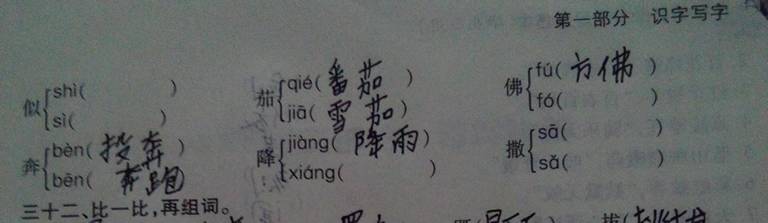 第一部分 识字写字
似{shì( ) 茄{qié(番茄) 佛{fú(方佛)
sì( ) jiā(雪茄) fó( )
奔{bèn(投奔) 降{jiàng(降雨) 撒{sā( )
bēn(奔跑) xiáng( ) sǎ( )
三十二、比一比,再组词。